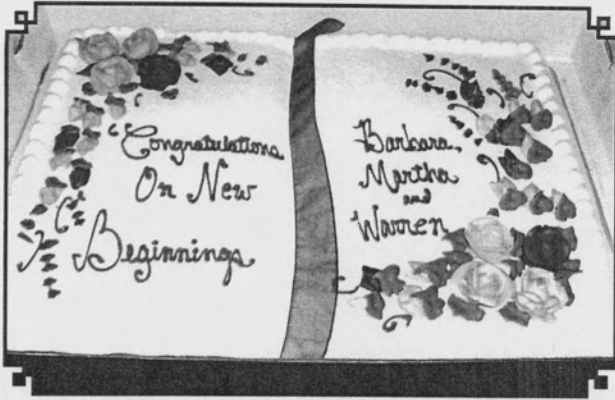 Congratulations
On New
Beginnings
Barbara,
Martha
and
Warren